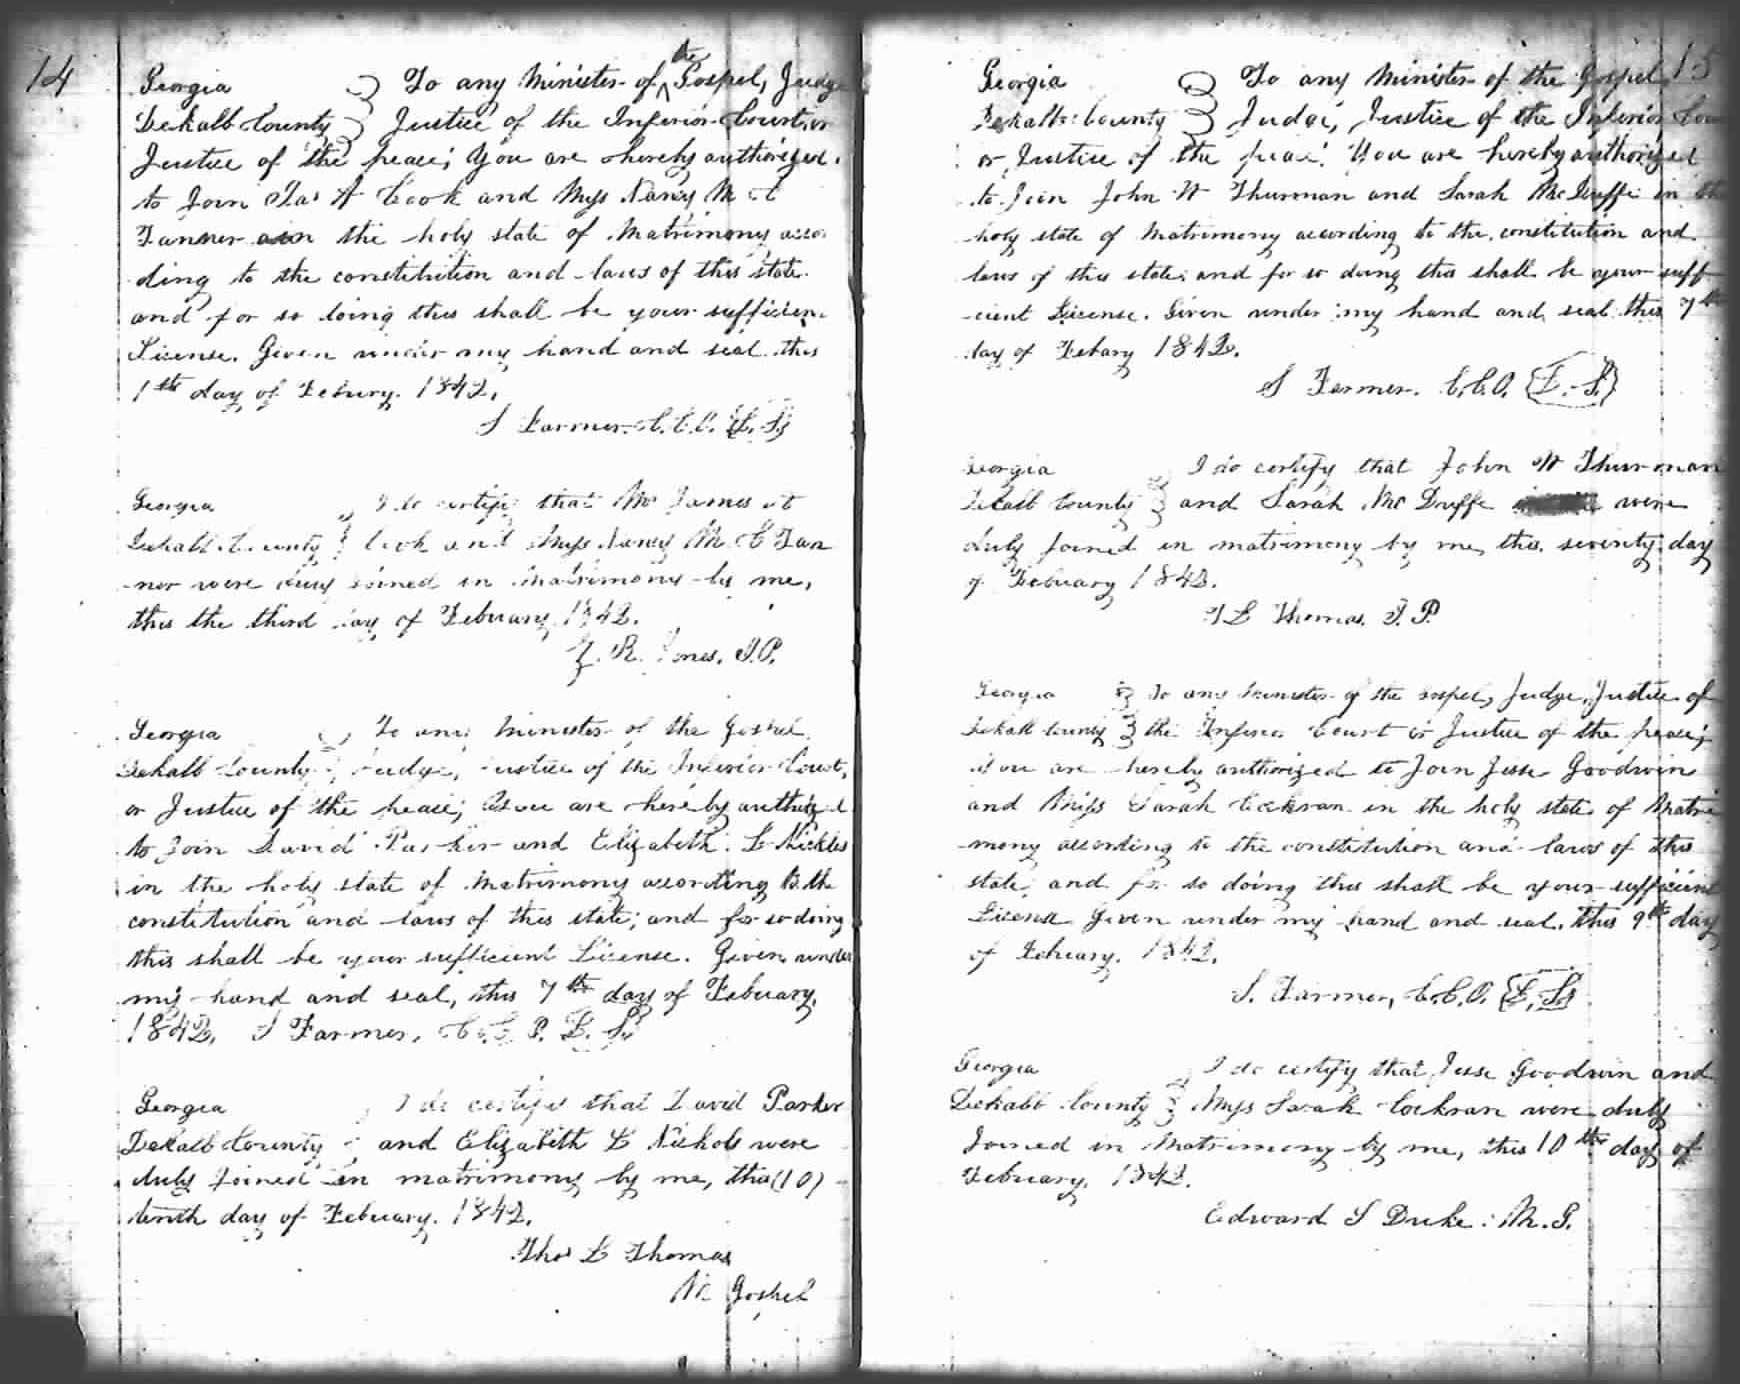 14
Georgia To any Minister of the Gospel, Judge
Dekalb County Justice of the Inferior Court, or
Justice of the peace; You are hereby authorized
to Join Jas A Cook and Miss Nancy M C
Tanner in the holy state of Matrimony accor
ding to the constitution and laws of this state
and for so doing this shall be your sufficien
License. Given under my hand and seal this
1th day of Febury. 1842.
S Farmer. C.C.O. L. S.
Georgia I do certify that Mr James A
Dekalb County Cook and Miss Nancy M C Tan
nor were duly joined in matrimony by me,
this the third day of Febuary 1842.
R. Jones. J.P.
Georgia To any Minister of the Gospel
Dekalb County Judge, Justice of the Inferior Court,
or Justice of the peace; You are hereby authrized
to join David Parker and Elizabeth L Nickles
in the holy state of Matrimony according to the
constitution and laws of this state; and for so doing
this shall be your sufficient License. Given under
my hand and seal, this 7th day of Febuary,
1842, S Farmer, C.C.O. L. S.
Georgia I do certify that David Parker
Dekalb County and Elizabeth L Nichols were
duly joined in matrimony by me, this (10)
tenth day of Febuary. 1842.
Thos L Thomas
M Gospel
15
Georgia To any Minister of the Gospel
Dekalb County Judge, Justice of the Inferior Cour
or Justice of the peace! You are hereby authorized
to Join John W Thurman and Sarah McDuffe in the
holy state of Matrimony according to the constitution and
laws of this state; and for so doing this shall be your suffi
cient License. Given under my hand and seal this 7th
day of Febary 1842.
S Farmer. C.C.O. L. S.
Georgia I do certify that John W Thurman
Dekalb County and Sarah McDuffe were
duly joined in matrimony by me, this seventy day
of Febuary 1842.
T L Thomas. J. P.
Georgia To any Minister of the Gospel, Judge, Justice of
Dekalb County the Inferior Court or Justice of the peace;
You are hereby authorized to Join Jesse Goodwin
and Miss Sarah Cockran in the holy state of Matri
mony according to the constitution and laws of this
state, and for so doing this shall be your sufficient
License Given under my hand and seal. this 9th day
of Febuary. 1842.
S. Farmer, C.C.O. L. S.
Georgia I do certify that Jesse Goodwin and
Dekalb County Miss Sarah Cockran were duly
Joined in Matrimony by me, this 10th day of
Febuary, 1842.
Edward S Duke. M. G.